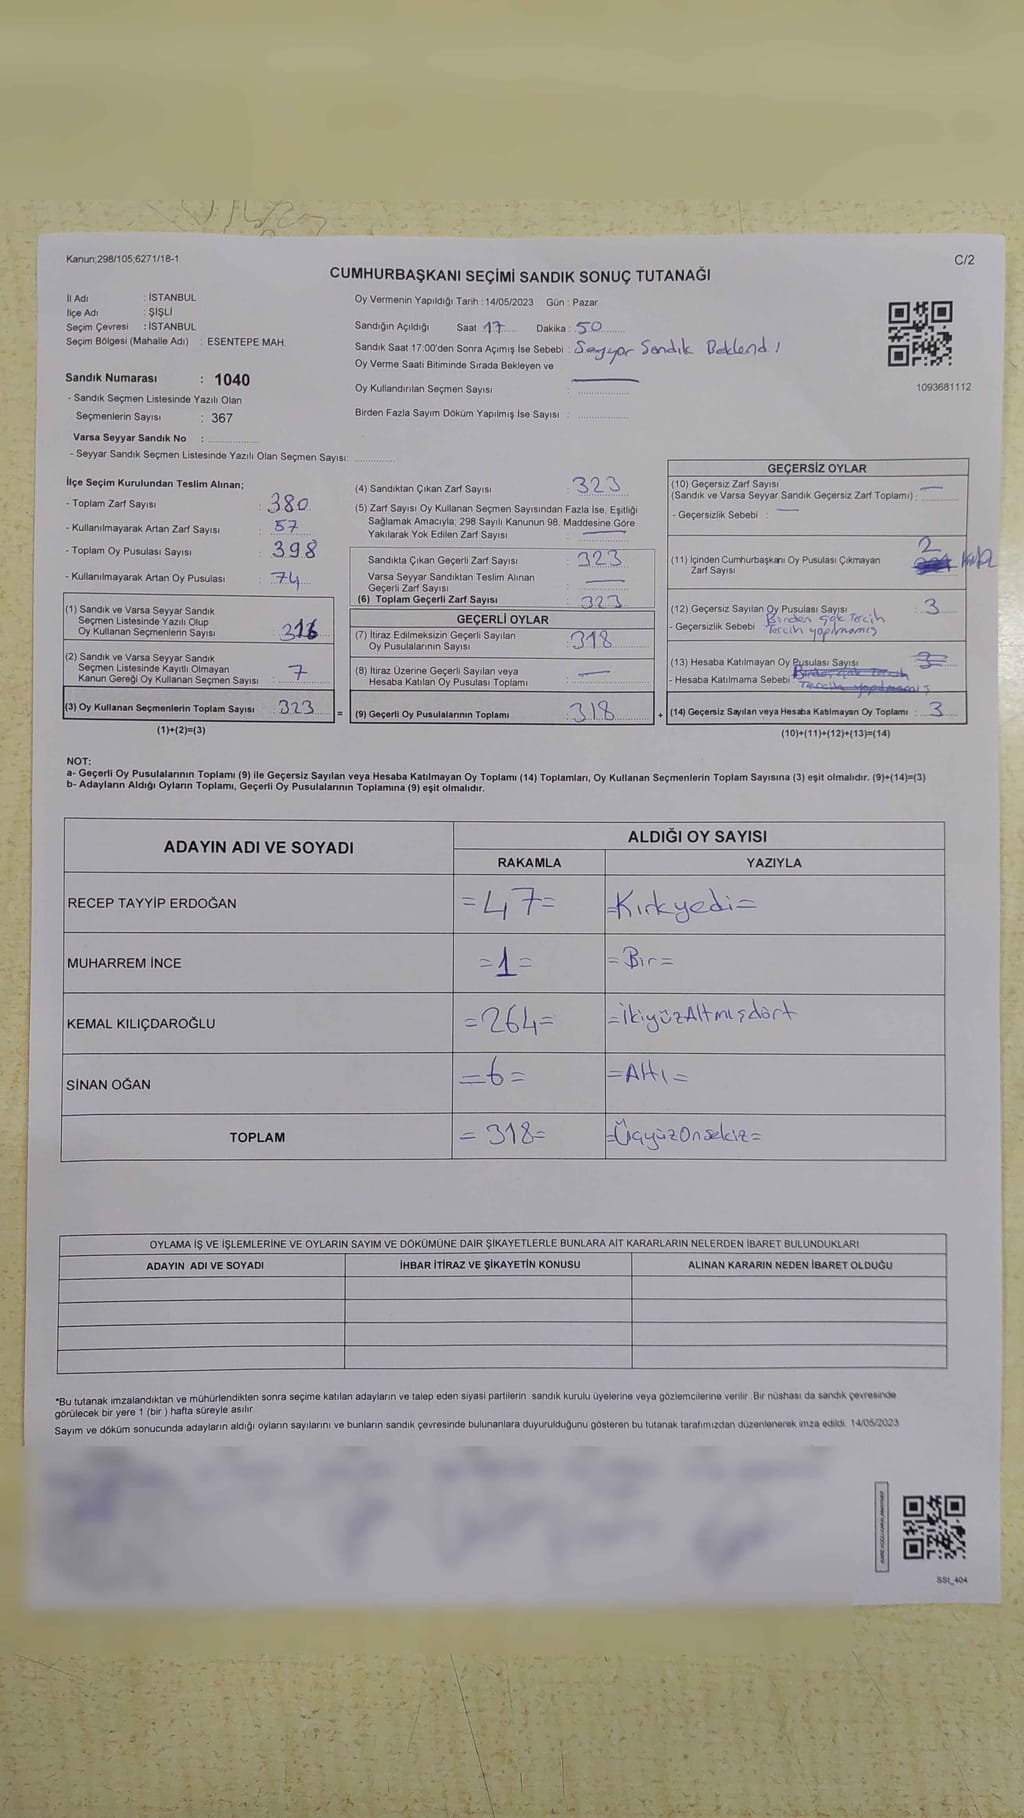 Kanun;298/105,6271/18-1
C/2
CUMHURBAŞKANI SEÇİMİ SANDIK SONUÇ TUTANAĞI
İl Adı : İSTANBUL
İlçe Adı : ŞİŞLİ
Seçim Çevresi : İSTANBUL
Seçim Bölgesi (Mahalle Adı) : ESENTEPE MAH.
Sandık Numarası : 1040
- Sandık Seçmen Listesinde Yazılı Olan
Seçmenlerin Sayısı : 367
Varsa Seyyar Sandık No :
- Seyyar Sandık Seçmen Listesinde Yazılı Olan Seçmen Sayısı:
Oy Vermenin Yapıldığı Tarih : 14/05/2023 Gün : Pazar
Sandığın Açıldığı Saat 17 Dakika : 50
Sandık Saat 17:00'den Sonra Açımış İse Sebebi : Seyyar Sandık Beklendi
Oy Verme Saati Bitiminde Sırada Bekleyen ve
Oy Kullandırılan Seçmen Sayısı :
Birden Fazla Sayım Döküm Yapılmış İse Sayısı :
1093681112
İlçe Seçim Kurulundan Teslim Alınan;
- Toplam Zarf Sayısı : 380
- Kullanılmayarak Artan Zarf Sayısı : 57
- Toplam Oy Pusulası Sayısı : 398
- Kullanılmayarak Artan Oy Pusulası : 74
(1) Sandık ve Varsa Seyyar Sandık
Seçmen Listesinde Yazılı Olup
Oy Kullanan Seçmenlerin Sayısı : 316
(2) Sandık ve Varsa Seyyar Sandık
Seçmen Listesinde Kayıtlı Olmayan
Kanun Gereği Oy Kullanan Seçmen Sayısı : 7
(3) Oy Kullanan Seçmenlerin Toplam Sayısı : 323
(1)+(2)=(3)
(4) Sandıktan Çıkan Zarf Sayısı : 323
(5) Zarf Sayısı Oy Kullanan Seçmen Sayısından Fazla İse, Eşitliği
Sağlamak Amacıyla; 298 Sayılı Kanunun 98. Maddesine Göre
Yakılarak Yok Edilen Zarf Sayısı :
Sandıkta Çıkan Geçerli Zarf Sayısı : 323
Varsa Seyyar Sandıktan Teslim Alınan
Geçerli Zarf Sayısı :
(6) Toplam Geçerli Zarf Sayısı : 323
GEÇERLİ OYLAR
(7) İtiraz Edilmeksizin Geçerli Sayılan
Oy Pusulalarının Sayısı : 318
(8) İtiraz Üzerine Geçerli Sayılan veya
Hesaba Katılan Oy Pusulası Toplamı :
= (9) Geçerli Oy Pusulalarının Toplamı : 318
GEÇERSİZ OYLAR
(10) Geçersiz Zarf Sayısı
(Sandık ve Varsa Seyyar Sandık Geçersiz Zarf Toplamı) :
- Geçersizlik Sebebi :
(11) İçinden Cumhurbaşkanı Oy Pusulası Çıkmayan
Zarf Sayısı 2
(12) Geçersiz Sayılan Oy Pusulası Sayısı : 3
- Geçersizlik Sebebi Birden Çok Tercih
Tercih yapılmamış
(13) Hesaba Katılmayan Oy Pusulası Sayısı
- Hesaba Katılmama Sebebi
+ (14) Geçersiz Sayılan veya Hesaba Katılmayan Oy Toplamı : 3
(10)+(11)+(12)+(13)=(14)
NOT:
a- Geçerli Oy Pusulalarının Toplamı (9) ile Geçersiz Sayılan veya Hesaba Katılmayan Oy Toplamı (14) Toplamları, Oy Kullanan Seçmenlerin Toplam Sayısına (3) eşit olmalıdır. (9)+(14)=(3)
b- Adayların Aldığı Oyların Toplamı, Geçerli Oy Pusulalarının Toplamına (9) eşit olmalıdır.
ADAYIN ADI VE SOYADI
ALDIĞI OY SAYISI
RAKAMLA YAZIYLA
RECEP TAYYİP ERDOĞAN =47= =Kırkyedi=
MUHARREM İNCE =1= =Bir=
KEMAL KILIÇDAROĞLU =264= =İkiyüzAltmışdört
SİNAN OĞAN =6= =Altı=
TOPLAM =318= =ÜçyüzOnsekiz=
OYLAMA İŞ VE İŞLEMLERİNE VE OYLARIN SAYIM VE DÖKÜMÜNE DAİR ŞİKAYETLERLE BUNLARA AİT KARARLARIN NELERDEN İBARET BULUNDUKLARI
ADAYIN ADI VE SOYADI İHBAR İTİRAZ VE ŞİKAYETİN KONUSU ALINAN KARARIN NEDEN İBARET OLDUĞU
*Bu tutanak imzalandıktan ve mühürlendikten sonra seçime katılan adayların ve talep eden siyasi partilerin sandık kurulu üyelerine veya gözlemcilerine verilir. Bir nüshası da sandık çevresinde
görülecek bir yere 1 (bir ) hafta süreyle asılır.
Sayım ve döküm sonucunda adayların aldığı oyların sayılarını ve bunların sandık çevresinde bulunanlara duyurulduğunu gösteren bu tutanak tarafımızdan düzenlenerek imza edildi. 14/05/2023
SSI_404